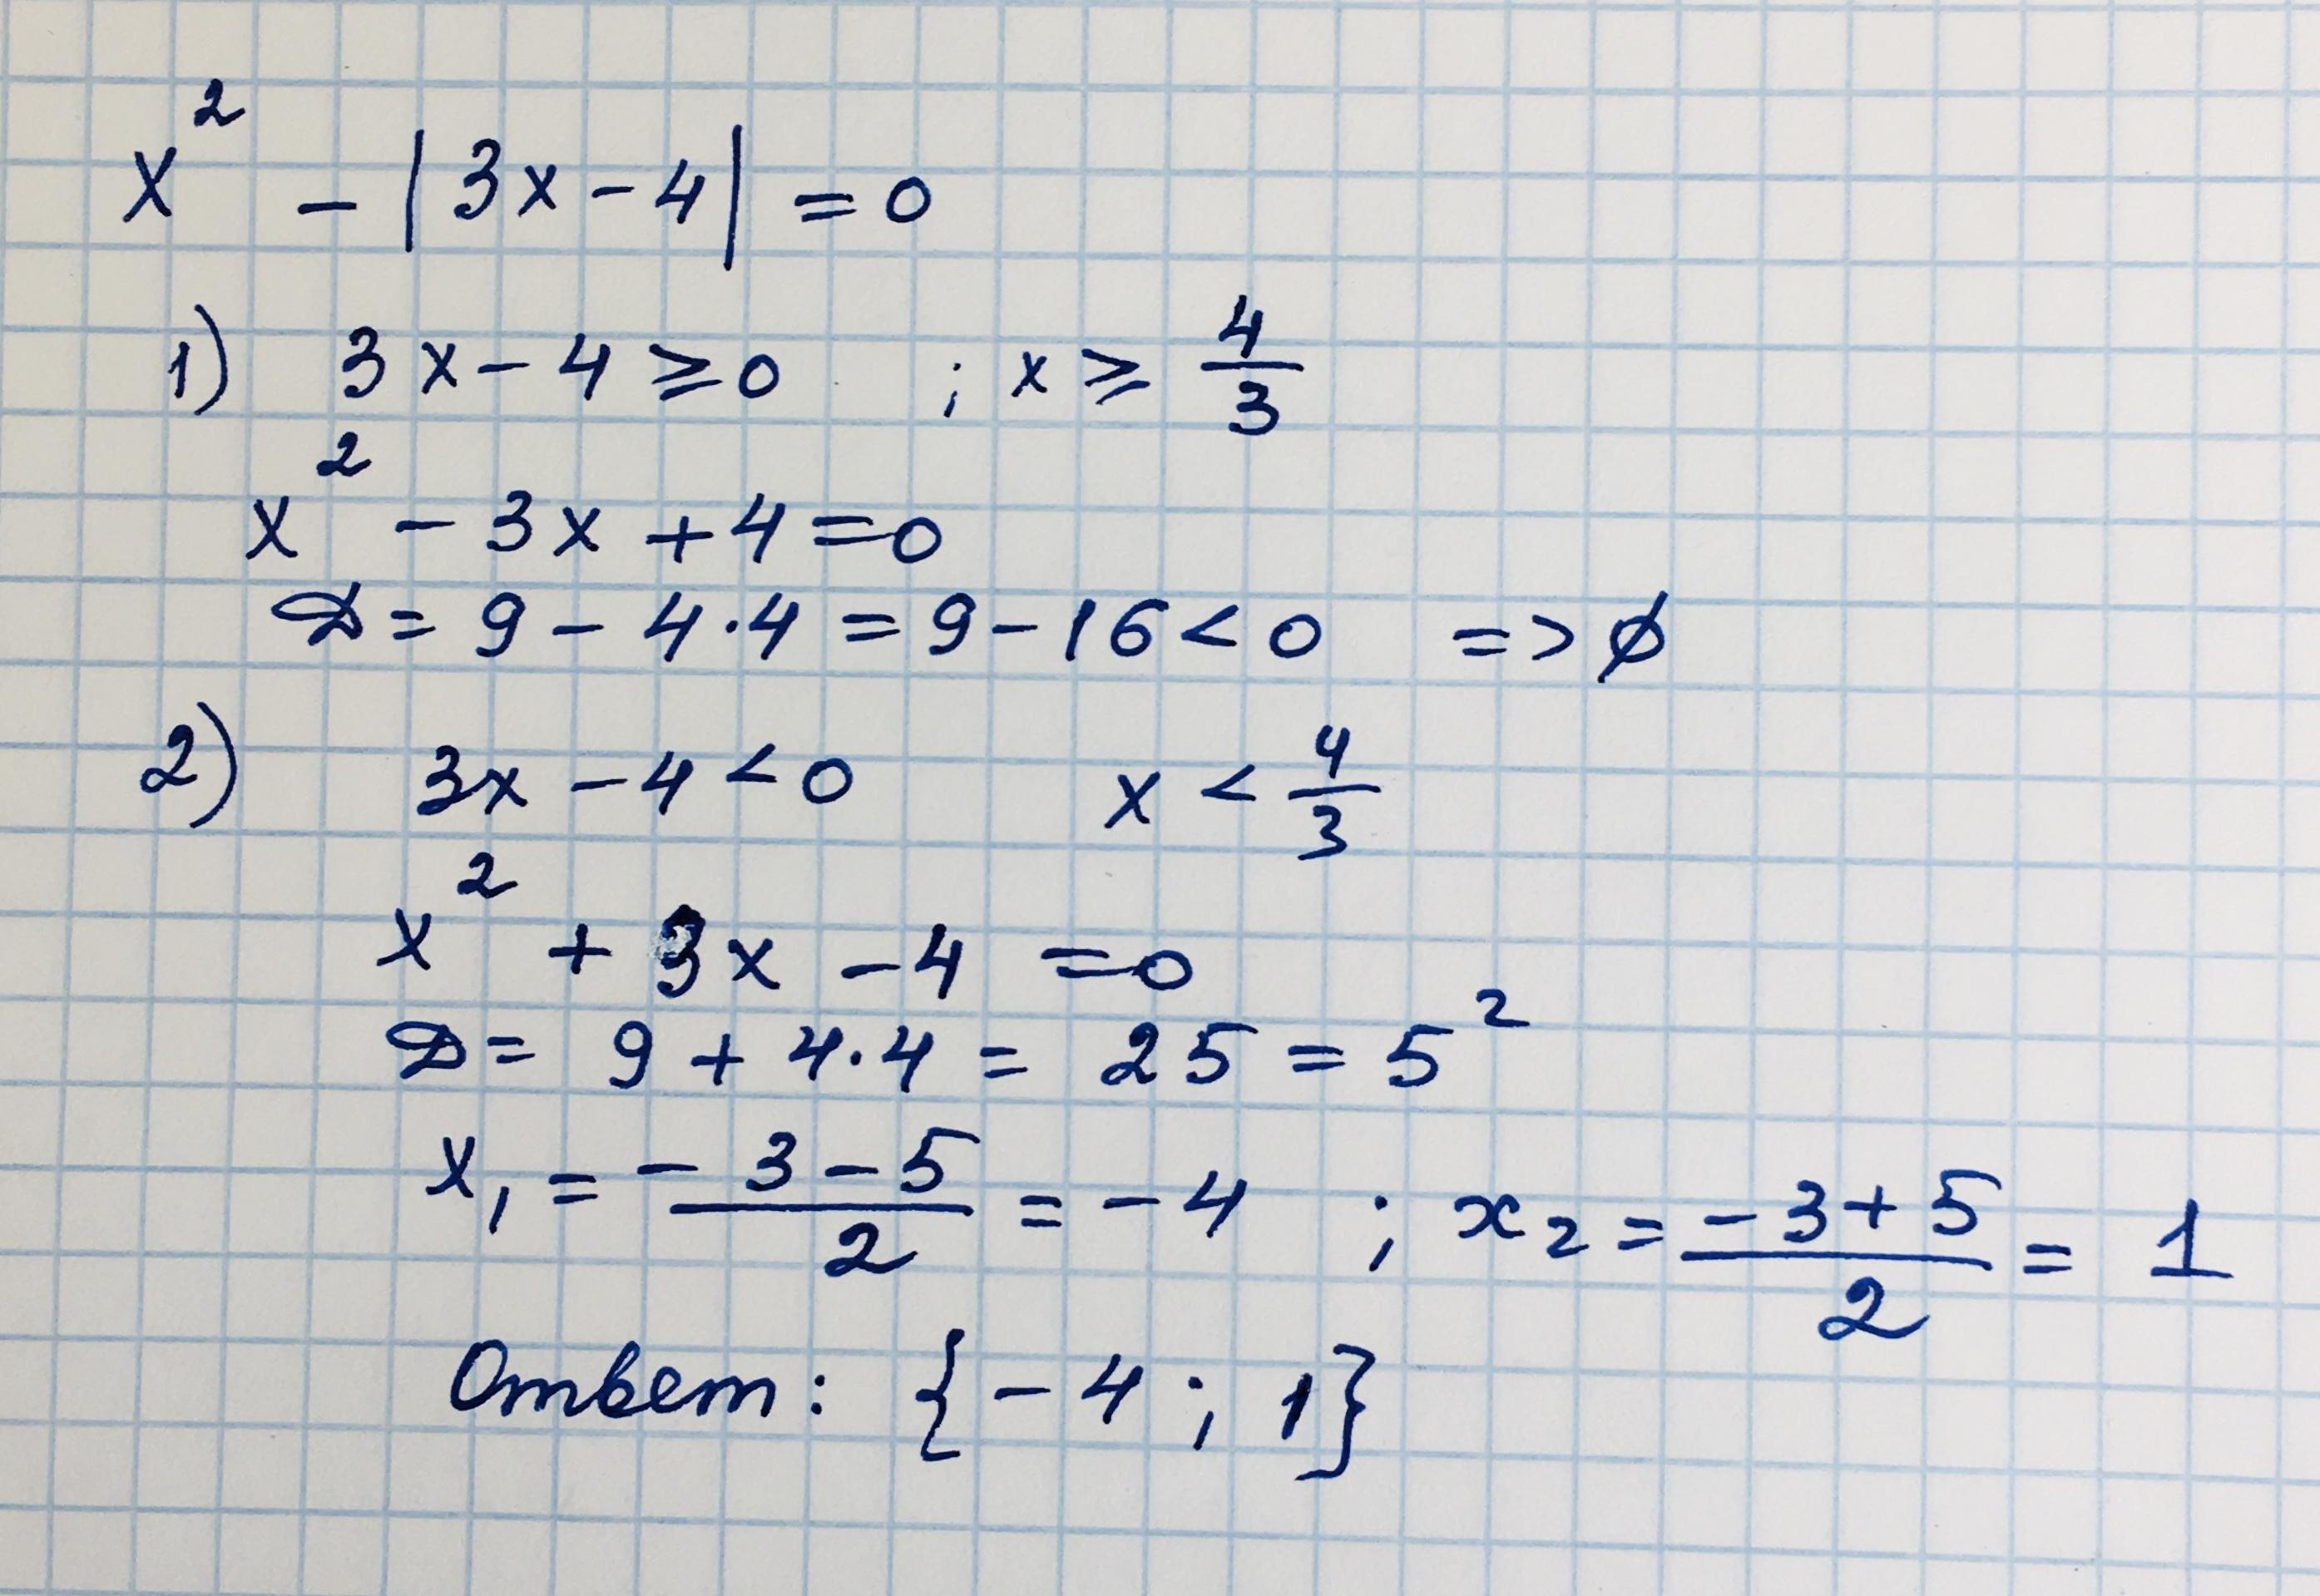 x² - |3x - 4| = 0
1) 3x - 4 ≥ 0 ; x ≥ 4/3
x² - 3x + 4 = 0
D = 9 - 4·4 = 9 - 16 < 0 => ∅
2) 3x - 4 < 0 x < 4/3
x² + 3x - 4 = 0
D = 9 + 4·4 = 25 = 5²
x₁ = (-3 - 5)/2 = -4 ; x₂ = (-3 + 5)/2 = 1
Ответ: {-4 ; 1}